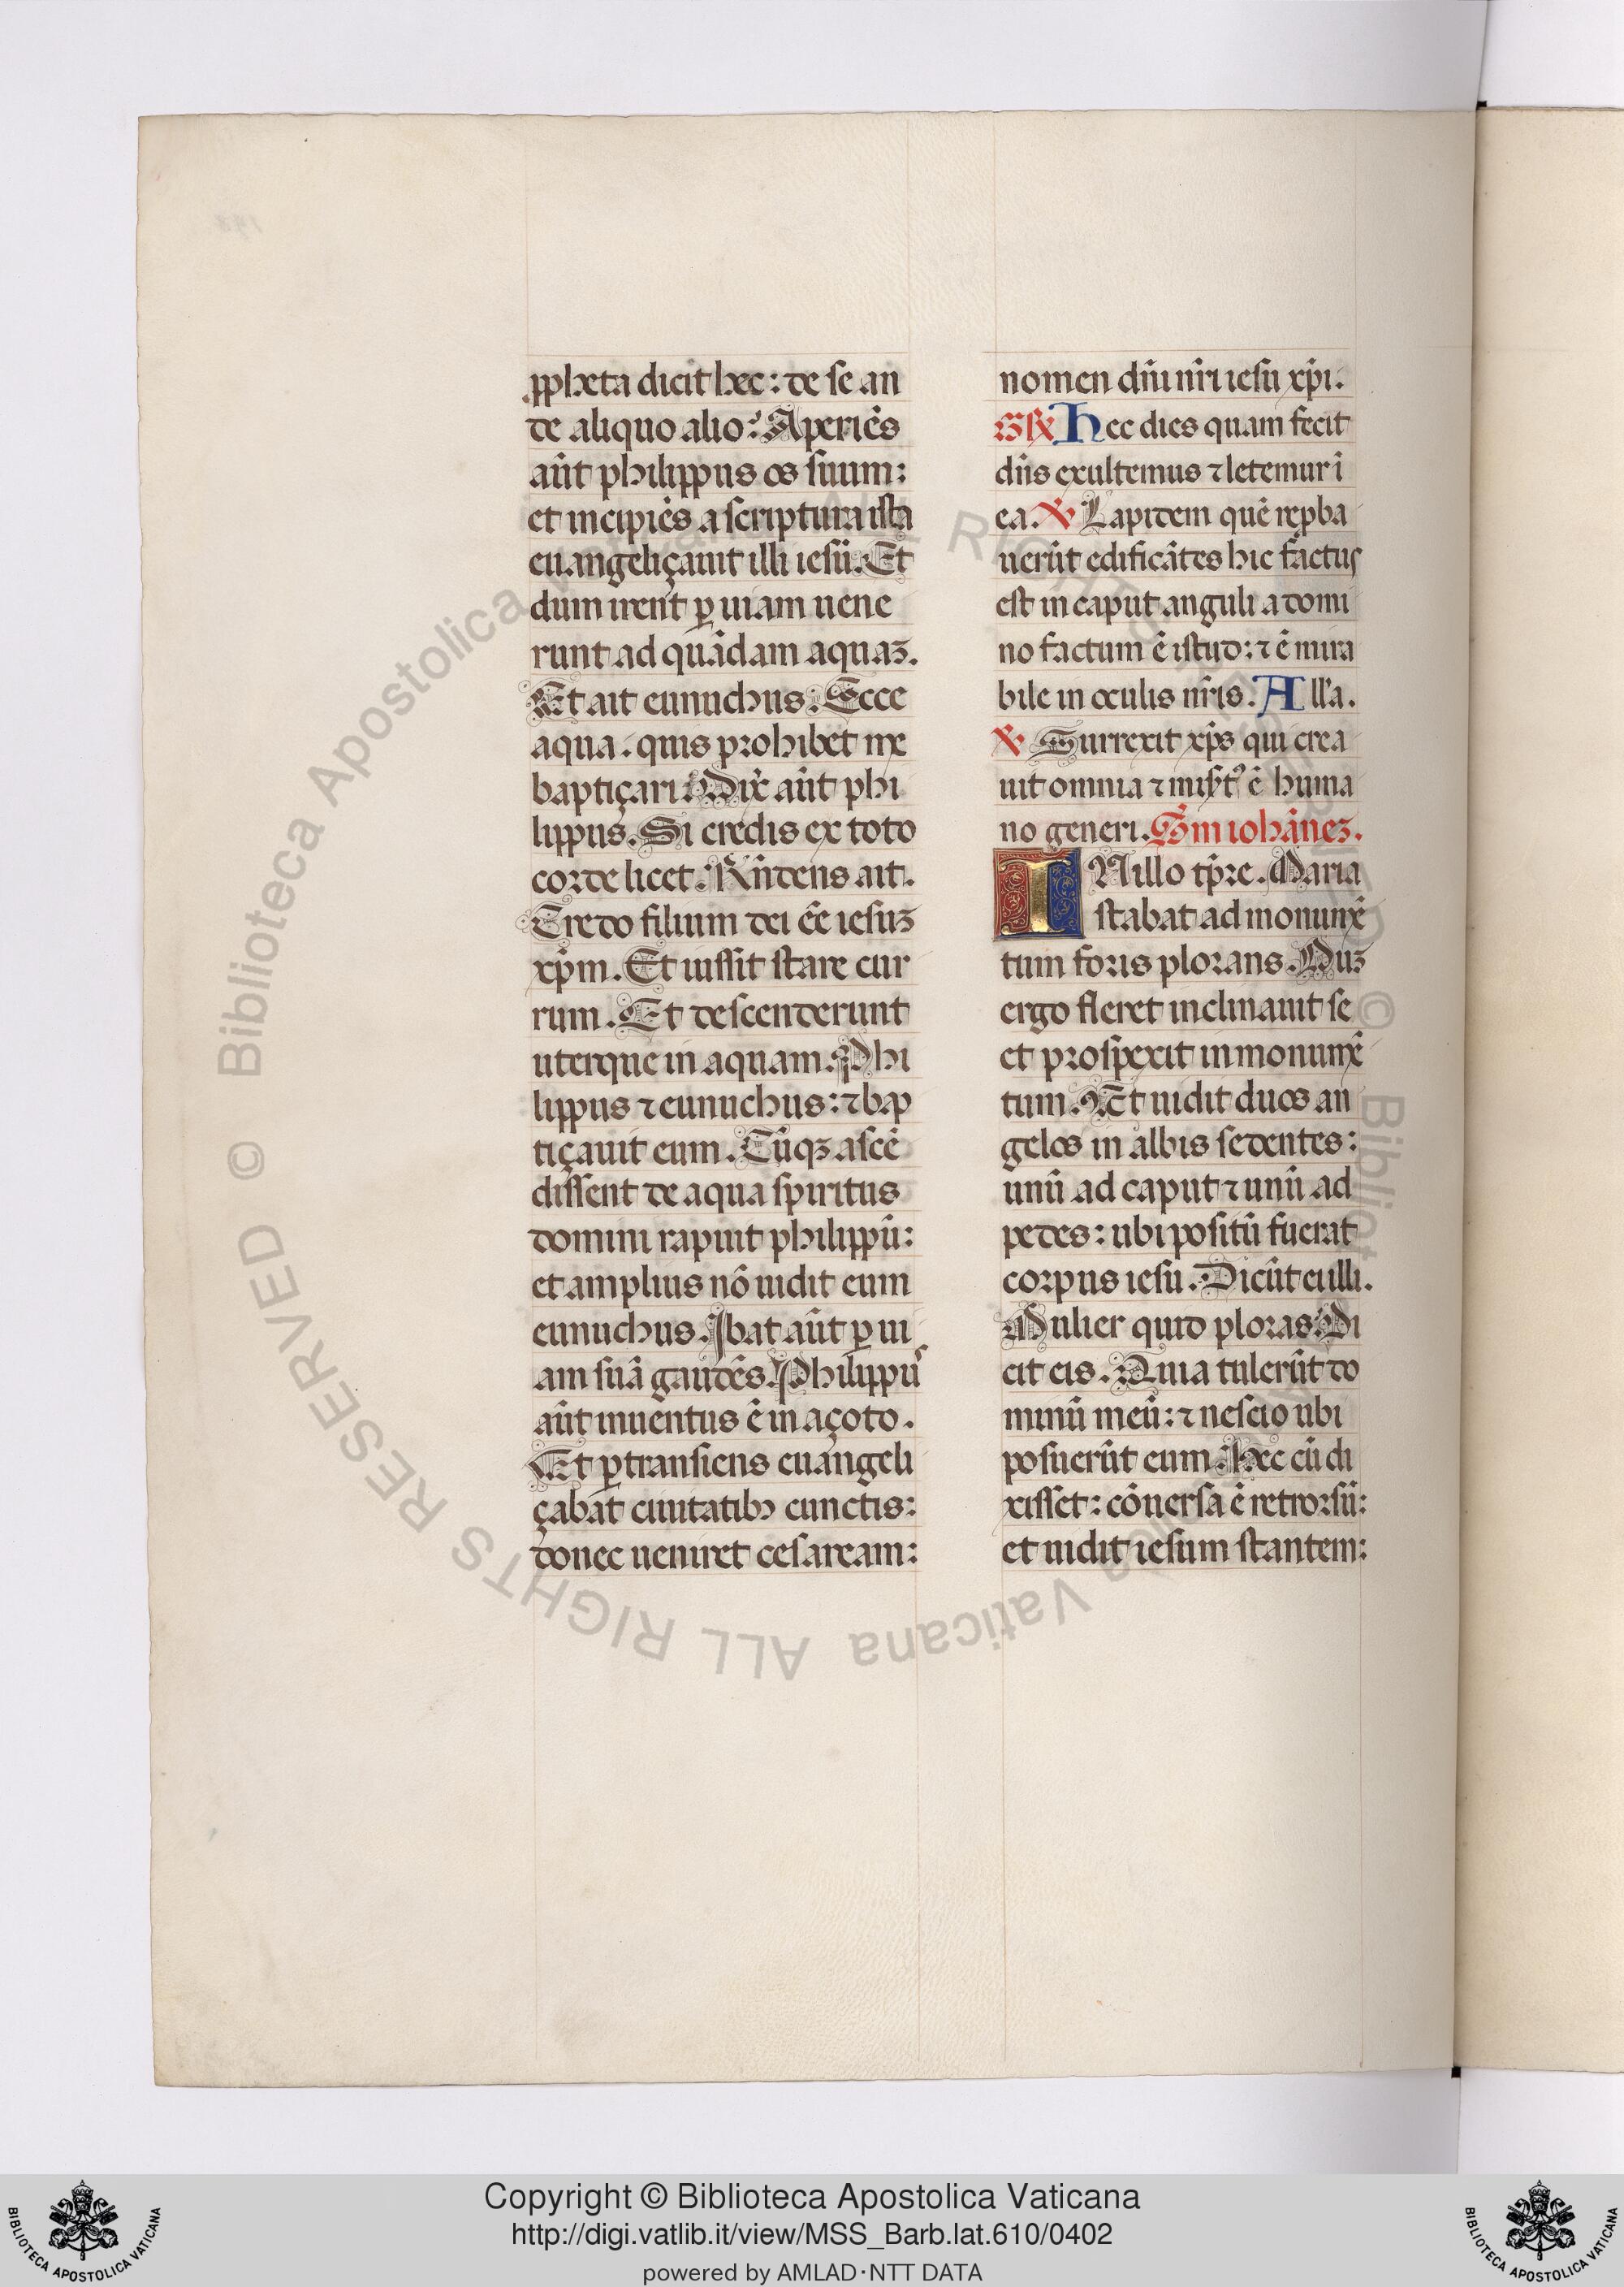 ꝓpheta dicit hec: de se an
de aliquo alio? Aperiẽs
aũt philippus os suum:
et incipiẽs a scriptura ista
euangeliçauit illi iesũ. Et
dum irent ꝑ uiam uene
runt ad quãdam aquaꝫ.
Et ait eunuchus: Ecce
aqua. quis prohibet me
baptiçari? Dix̃ aũt phi
lippus. Si credis ex toto
corde licet. Rñdens ait.
Credo filium dei eẽ iesuꝫ
xp̃m. Et iussit stare cur
rum. Et descenderunt
uterque in aquam. Phi
lippus ⁊ eunuchus: ⁊ bap
tiçauit eum. Cũqꝫ ascẽ
dissent de aqua spiritus
domini rapuit philippũ:
et amplius nõ uidit eum
eunuchus. Ibat aũt ꝑ ui
am suã gaudẽs. Philippus
aũt inuentus ẽ in açoto.
Et ꝑtransiens euangeli
çabat ciuitatibꝫ cunctis:
donec ueniret cesaream:
nomen dñi nr̃i iesu xp̃i.
GR̃ Hec dies quam fecit
dñs exultemus ⁊ letemur ĩ
ea. ℣ Lapidem quẽ repba
uerũt edificãtes hic factus
est in caput anguli a domi
no factum ẽ istud: ⁊ ẽ mira
bile in oculis nr̃is. All'a.
℣ Surrexit xp̃s qui crea
uit omnia ⁊ misꝰtꝰ ẽ huma
no generi. Sm̃ iohãneꝫ.
IN illo tp̃re. Maria
stabat ad monumẽ
tum foris plorans. Duꝫ
ergo fleret inclinauit se
et prospexit in monumẽ
tum. Et uidit duos an
gelos in albis sedentes:
unũ ad caput ⁊ unũ ad
pedes: ubi positũ fuerat
corpus iesu. Dicũt ei illi.
Mulier quid ploras? Di
cit eis. Quia tulerũt do
minũ meũ: ⁊ nescio ubi
posuerũt eum. Hec cũ di
xisset: cõuersa ẽ retrorsũ:
et uidit iesum stantem:
© Biblioteca Apostolica Vaticana ALL RIGHTS RESERVED
Copyright © Biblioteca Apostolica Vaticana
http://digi.vatlib.it/view/MSS_Barb.lat.610/0402
powered by AMLAD·NTT DATA
BIBLIOTECA APOSTOLICA VATICANA
BIBLIOTECA APOSTOLICA VATICANA